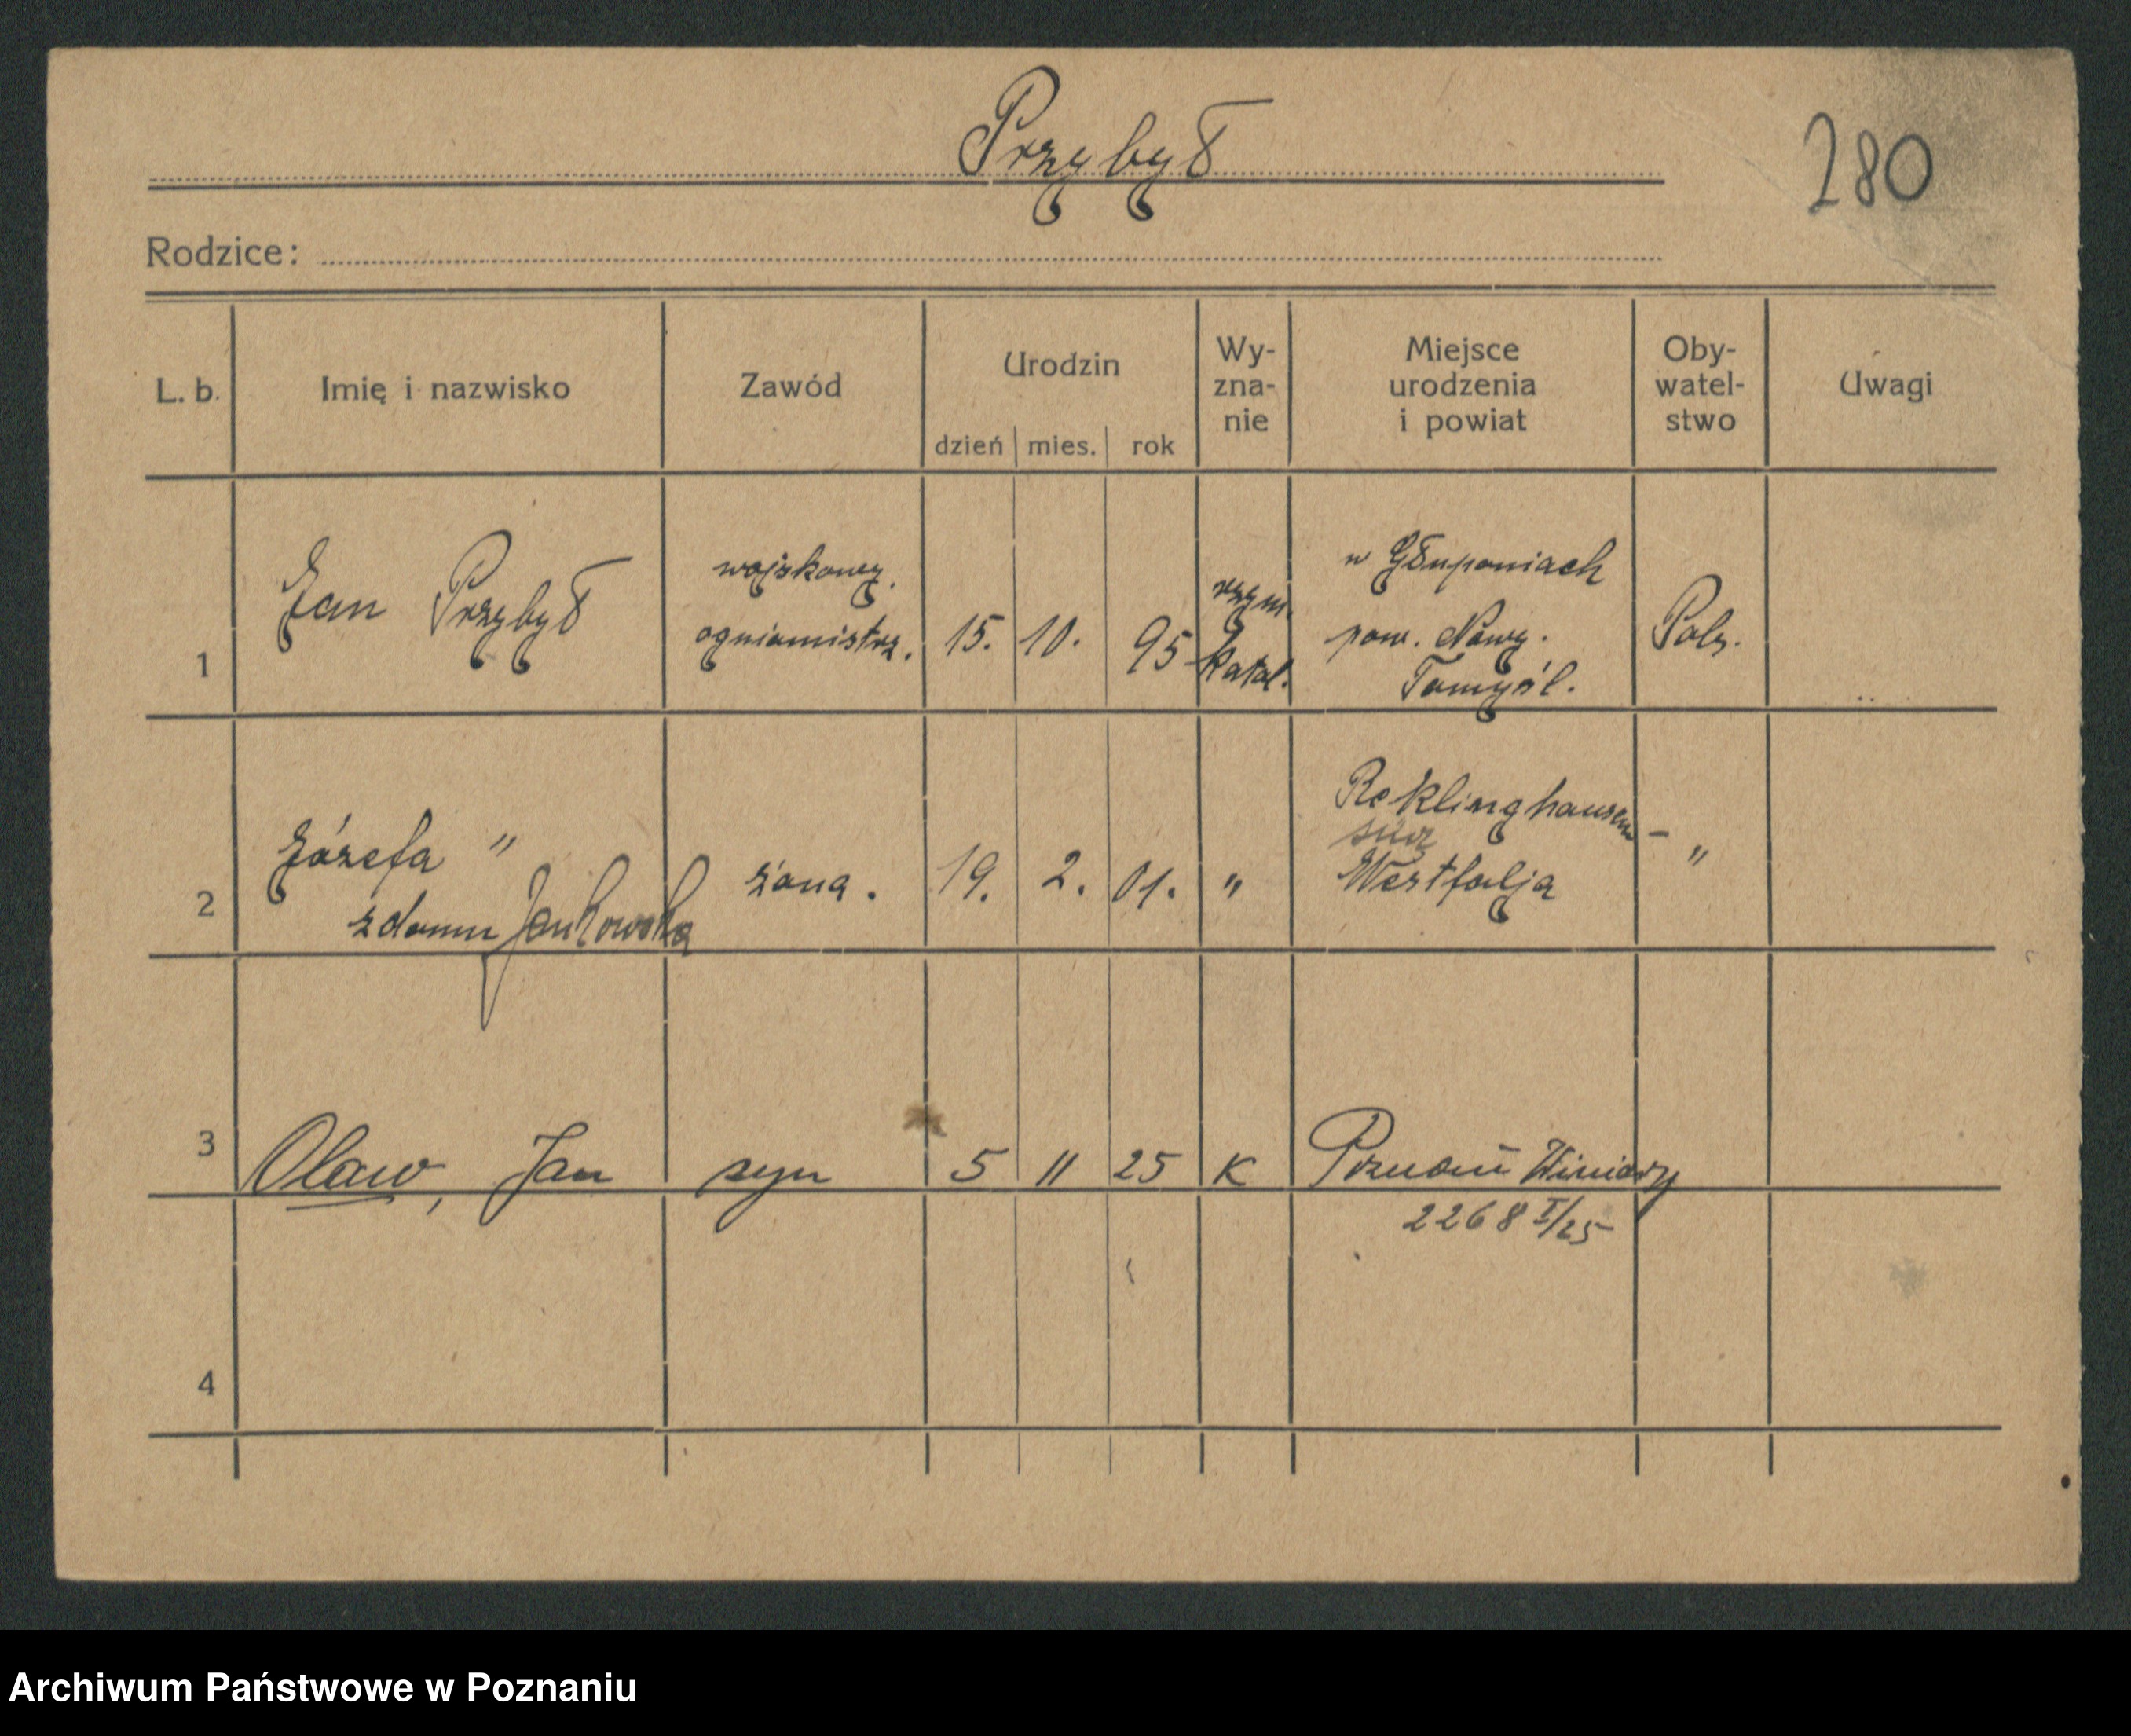 Przybył
280
Rodzice:
L. b. Imię i nazwisko Zawód Urodzin dzień mies. rok Wy-zna-nie Miejsce urodzenia i powiat Oby-watel-stwo Uwagi
1 Jan Przybył wojskowy. ogniomistrz. 15. 10. 95 rzym. katol. w Głuponiach pow. Nowy. Tomyśl. Pols.
2 Józefa " z domu Jankowska żona. 19. 2. 01. " Reklinghausen süd Westfalja - "
3 Olaw, Jan syn 5 11 25 K Poznań Winiary
2268 I/25
4
Archiwum Państwowe w Poznaniu